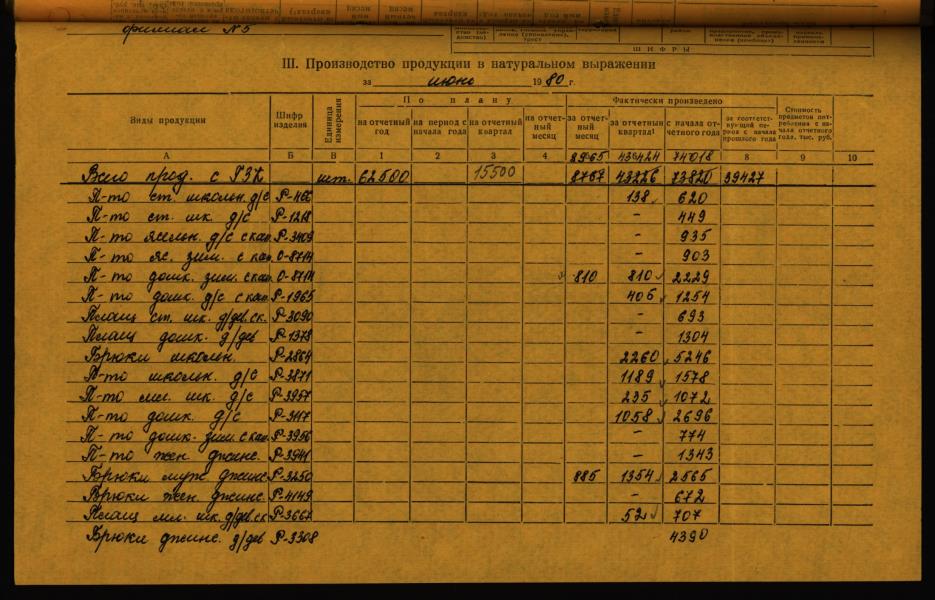 филиал N5
Ш И Ф Р Ы
III. Производство продукции в натуральном выражении
за июнь 1980 г.
Виды продукции Шифр изделия Единица измерения По плану Фактически произведено
на отчетный год на период с начала года на отчетный квартал на отчетный месяц за отчетный месяц за отчетный квартал с начала отчетного года за соответствующий период с начала прошлого года
А Б В 1 2 3 4 8 9 10
8965 43424 74018
Всего прод. с шт. 62500 15500 8767 43226 73820 39427
П-то ст. школьн. д/с Р-466 138 620
П-то ст. шк. д/с Р-1218 – 449
П-то ясельн. д/с с кап. Р-3409 – 935
П-то яс. зим. с кап. О-8714 – 903
П-то дошк. зим. с кап. О-8714 810 810 2229
П-то дошк. д/с с кап. Р-1965 406 1254
Плащ ст. шк. д/дев. ск. Р-3090 – 693
Плащ дошк. д/дев Р-1378 – 1304
Брюки школьн. Р-2864 2260 5246
П-то школьн. д/с Р-3871 1189 1578
П-то мл. шк. д/с Р-3957 235 1072
П-то дошк. д/с Р-3117 1058 2696
П-то дошк. зим. с кап. Р-3956 – 774
П-то жен. джинс. Р-3941 – 1343
Брюки муж. джинс. Р-3250 885 1354 2565
Брюки жен. джинс. Р-4149 – 672
Плащ мл. шк. д/дев. ск. Р-3667 52 707
Брюки джинс. д/дев Р-3308 4390